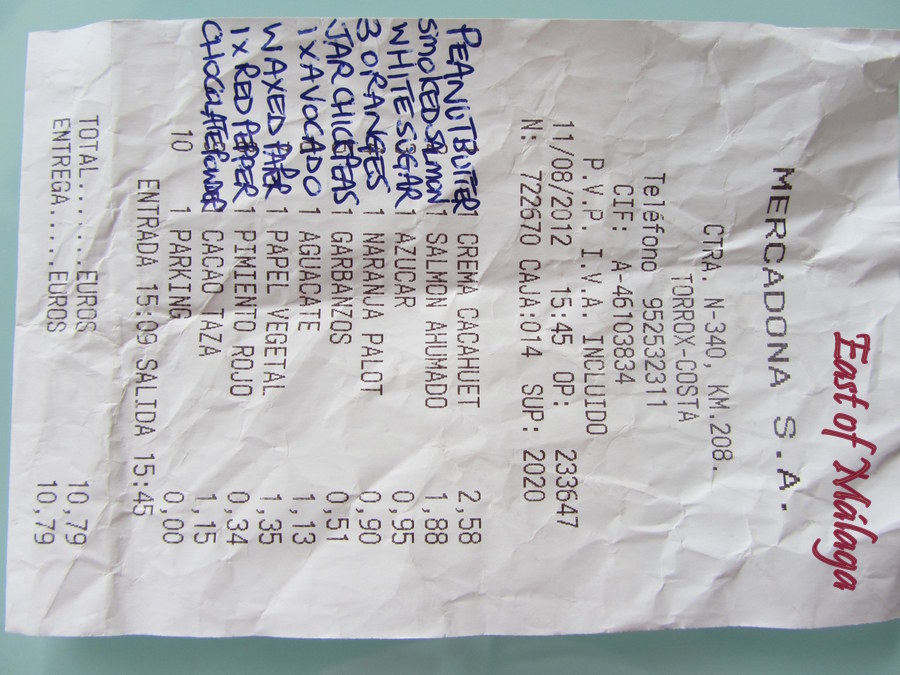 East of Málaga
MERCADONA S.A.
CTRA. N-340, KM.208.
TORROX-COSTA
Teléfono 952532311
CIF: A-46103834
P.V.P. I.V.A. INCLUIDO
11/08/2012 15:45 OP: 233647
N: 722670 CAJA:014 SUP: 2020
PEANUTBUTTER 1 CREMA CACAHUET 2,58
SMOKED SALMON 1 SALMON AHUMADO 1,88
WHITE SUGAR 1 AZUCAR 0,95
3 ORANGES 1 NARANJA PALOT 0,90
JAR CHICKPEAS 1 GARBANZOS 0,51
1 X AVOCADO 1 AGUACATE 1,13
WAXED PAPER 1 PAPEL VEGETAL 1,35
1X RED PEPPER 1 PIMIENTO ROJO 0,34
CHOCOLATE POWDER 1 CACAO TAZA 1,15
10 1 PARKING 0,00
ENTRADA 15:09 SALIDA 15:45
TOTAL...... EUROS 10,79
ENTREGA.... EUROS 10,79